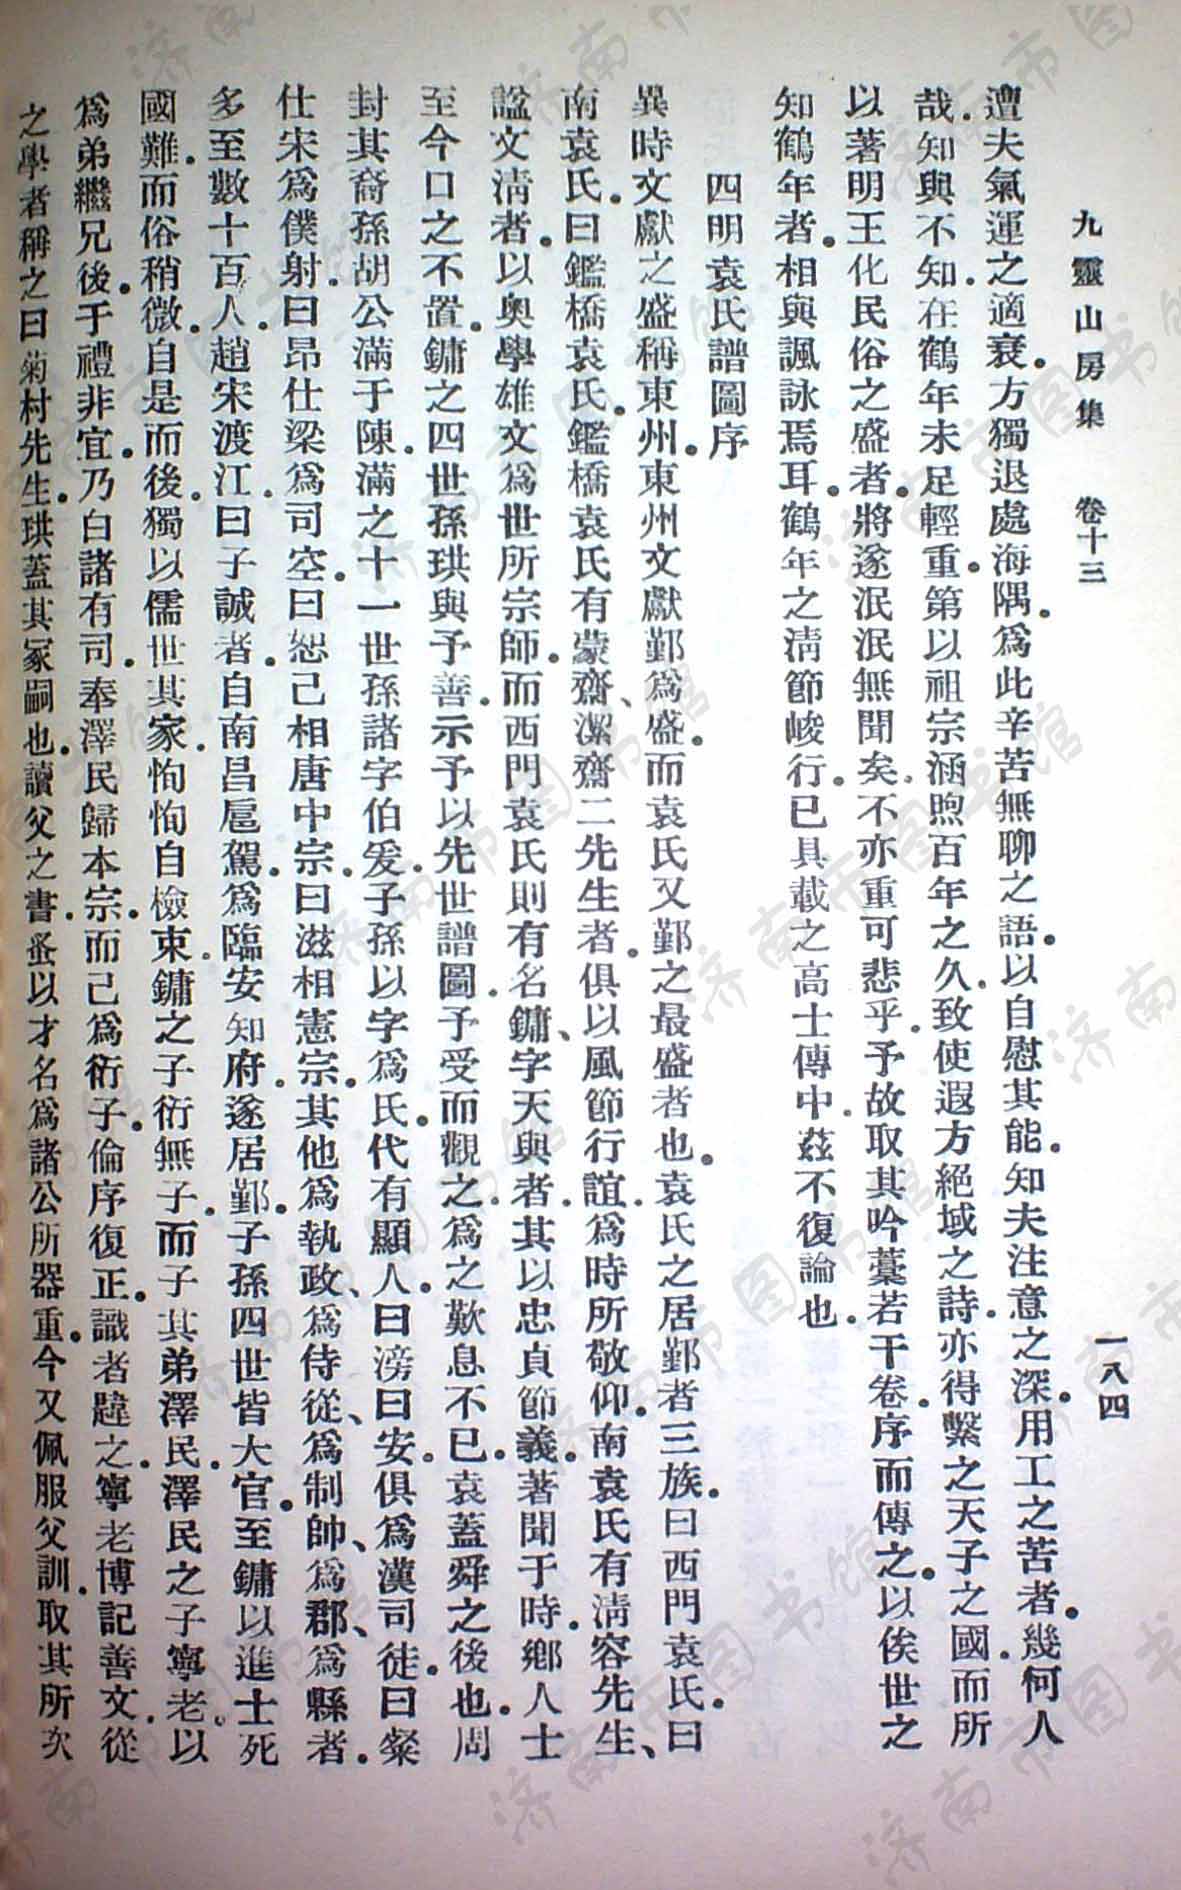 九靈山房集　卷十三　一八四
遭夫氣運之適衰。方獨退處海隅。爲此辛苦無聊之語。以自慰其能。知夫注意之深。用工之苦者。幾何人
哉。知與不知。在鶴年未足輕重。第以祖宗涵煦百年之久。致使遐方絕域之詩。亦得繫之天子之國。而所
以著明王化民俗之盛者。將遂泯泯無聞矣。不亦重可悲乎。予故取其吟藁若干卷。序而傳之。以俟世之
知鶴年者。相與諷詠焉耳。鶴年之淸節峻行。已具載之高士傳中。茲不復論也。
四明袁氏譜圖序
異時文獻之盛稱東州。東州文獻鄞爲盛。而袁氏又鄞之最盛者也。袁氏之居鄞者三族。曰西門袁氏。曰
南袁氏。曰鑑橋袁氏。鑑橋袁氏有蒙齋、潔齋二先生者。俱以風節行誼。爲時所敬仰。南袁氏有淸容先生、
諡文淸者。以奧學雄文爲世所宗師。而西門袁氏則有名鏞、字天與者。其以忠貞節義。著聞于時。鄉人士
至今口之不置。鏞之四世孫珙與予善。示予以先世譜圖。予受而觀之。爲之歎息不已。袁蓋舜之後也。周
封其裔孫胡公滿于陳。滿之十一世孫諸字伯爰。子孫以字爲氏。代有顯人。曰滂曰安。俱爲漢司徒。曰粲
仕宋爲僕射。曰昂仕梁爲司空。曰恕己相唐中宗。曰滋相憲宗。其他爲執政、爲侍從、爲制帥、爲郡、爲縣者。
多至數十百人。趙宋渡江。曰子誠者。自南昌扈駕。爲臨安知府。遂居鄞。子孫四世皆大官。至鏞以進士死
國難。而俗稍微。自是而後。獨以儒世其家。恂恂自檢束。鏞之子衎無子。而子其弟澤民。澤民之子寧老。以
爲弟繼兄後。于禮非宜。乃白諸有司。奉澤民歸本宗。而己爲衎子。倫序復正。識者韙之。寧老博記善文。從
之學者稱之曰菊村先生。珙蓋其冢嗣也。讀父之書。蚤以才名爲諸公所器重。今又佩服父訓。取其所次